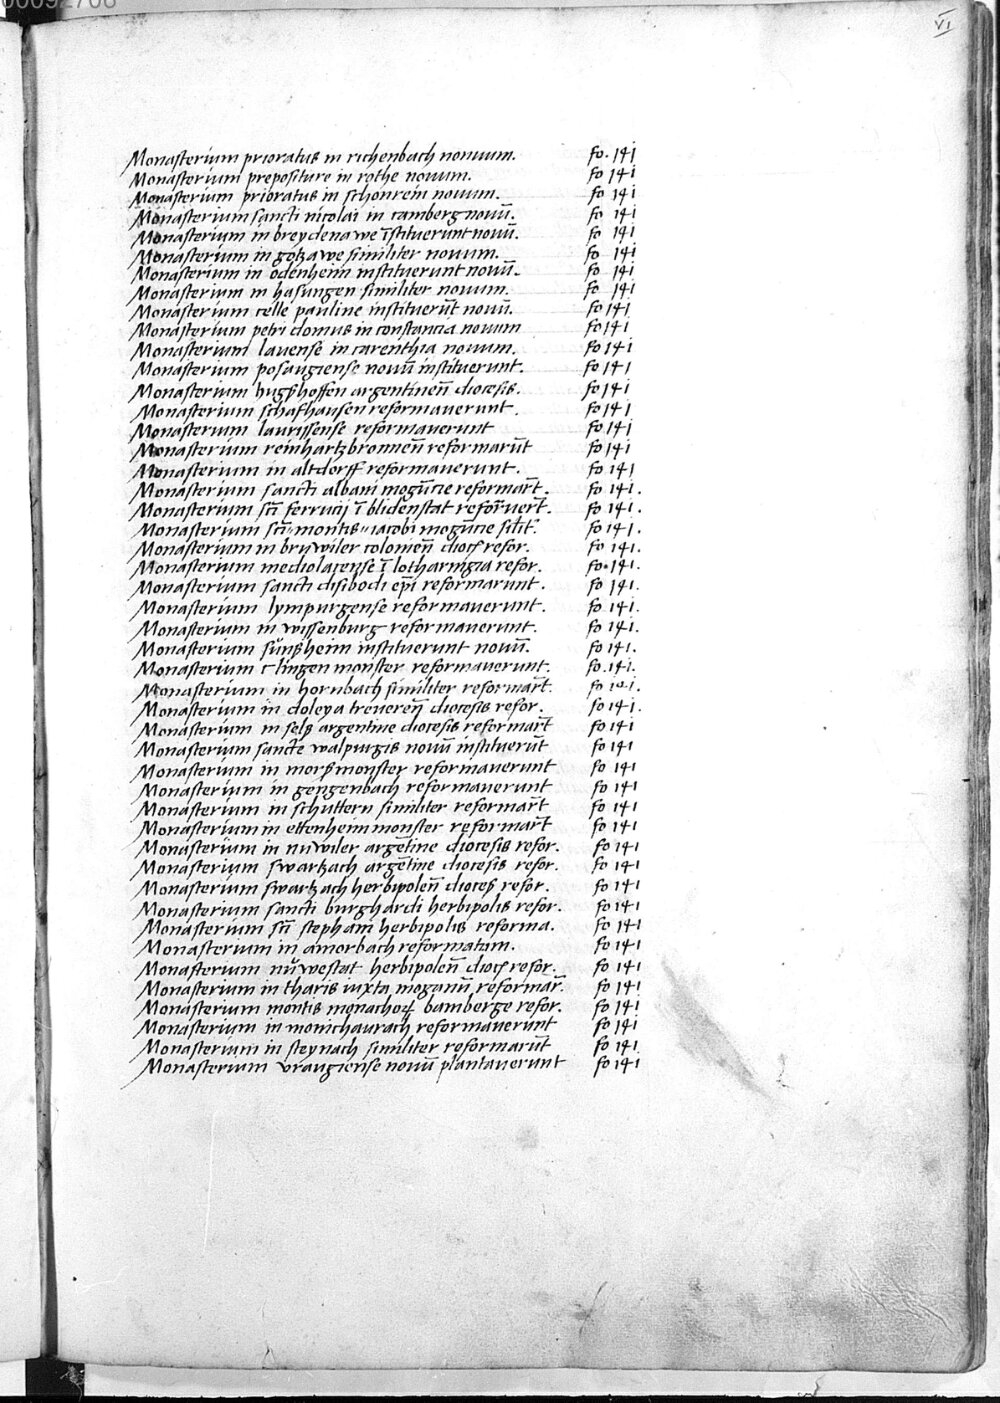 00092706
VI
Monasterium prioratus in richenbach nonuum. fo. 141
Monasterium prepositure in rothe nouum. fo 141
Monasterium prioratus in schonrein nouum. fo 141
Monasterium sancti nicolai in camberg nouū. fo 141
Monasterium in breydenawe īstituerunt nouū. fo 141
Monasterium in gotzawe similiter nouum. fo 141
Monasterium in odenheim instituerunt nouū. fo 141
Monasterium in hasungen similiter nouum. fo 141
Monasterium celle pauline instituerūt nouū. fo 141
Monasterium petri domus in constancia nouum fo 141
Monasterium lauense in carenthia nouum. fo 141
Monasterium posaugiense nouū instituerunt. fo 141
Monasterium hugshoffen argentineñ diocesis. fo 141
Monasterium schafhausen reformauerunt. fo 141
Monasterium laurissense reformauerunt fo 141
Monasterium reinhartzbronneñ reformarūt fo 141
Monasterium in altdorff reformauerunt. fo 141
Monasterium sancti albani mogūcie reformar̄t. fo 141.
Monasterium sct̄i ferrucij ī blidenstat refor̄uer̄t. fo 141.
Monasterium sct̄i montis iacobi mogūcie silīt. fo 141.
Monasterium in bruwiler colonieñ dioc̄ refor. fo 141.
Monasterium mediolacense ī lotharingia refor. fo. 141.
Monasterium sancti disibodi ep̄i reformarunt. fo 141.
Monasterium lympurgense reformauerunt. fo 141.
Monasterium in wissenburg reformauerunt. fo 141.
Monasterium sünßheim instituerunt nouū. fo 141.
Monasterium clingen monster reformauerunt. fo. 141.
Monasterium in hornbach similiter reformar̄t. fo 141.
Monasterium in doleya trevereñ diocesis refor. fo 141.
Monasterium in sels argentine diocesis reformar̄t fo 141
Monasterium sancte walpurgis nouū instituerūt fo 141
Monasterium in morßmonster reformauerunt fo 141
Monasterium in gengenbach reformauerunt fo 141
Monasterium in schuttern similiter reformar̄t fo 141
Monasterium in ettenheim monster reformar̄t fo 141
Monasterium in nuwiler argētine diocesis refor. fo 141
Monasterium swartzach argētine diocesis refor. fo 141
Monasterium swartzach herbipoleñ dioces refor. fo 141
Monasterium sancti burghardi herbipolis refor. fo 141
Monasterium sct̄i stephani herbipolis reforma. fo 141
Monasterium in amorbach reformatum. fo 141
Monasterium nüwestat herbipoleñ dioc̄ refor. fo 141
Monasterium in tharis iuxta moganū reformar̄. fo 141
Monasterium montis monachoꝝ bamberge refor. fo 141
Monasterium in monichaurach reformauerunt fo 141
Monasterium in steynach similiter reformarūt fo 141
Monasterium vraugiense nouū plantauerunt fo 141